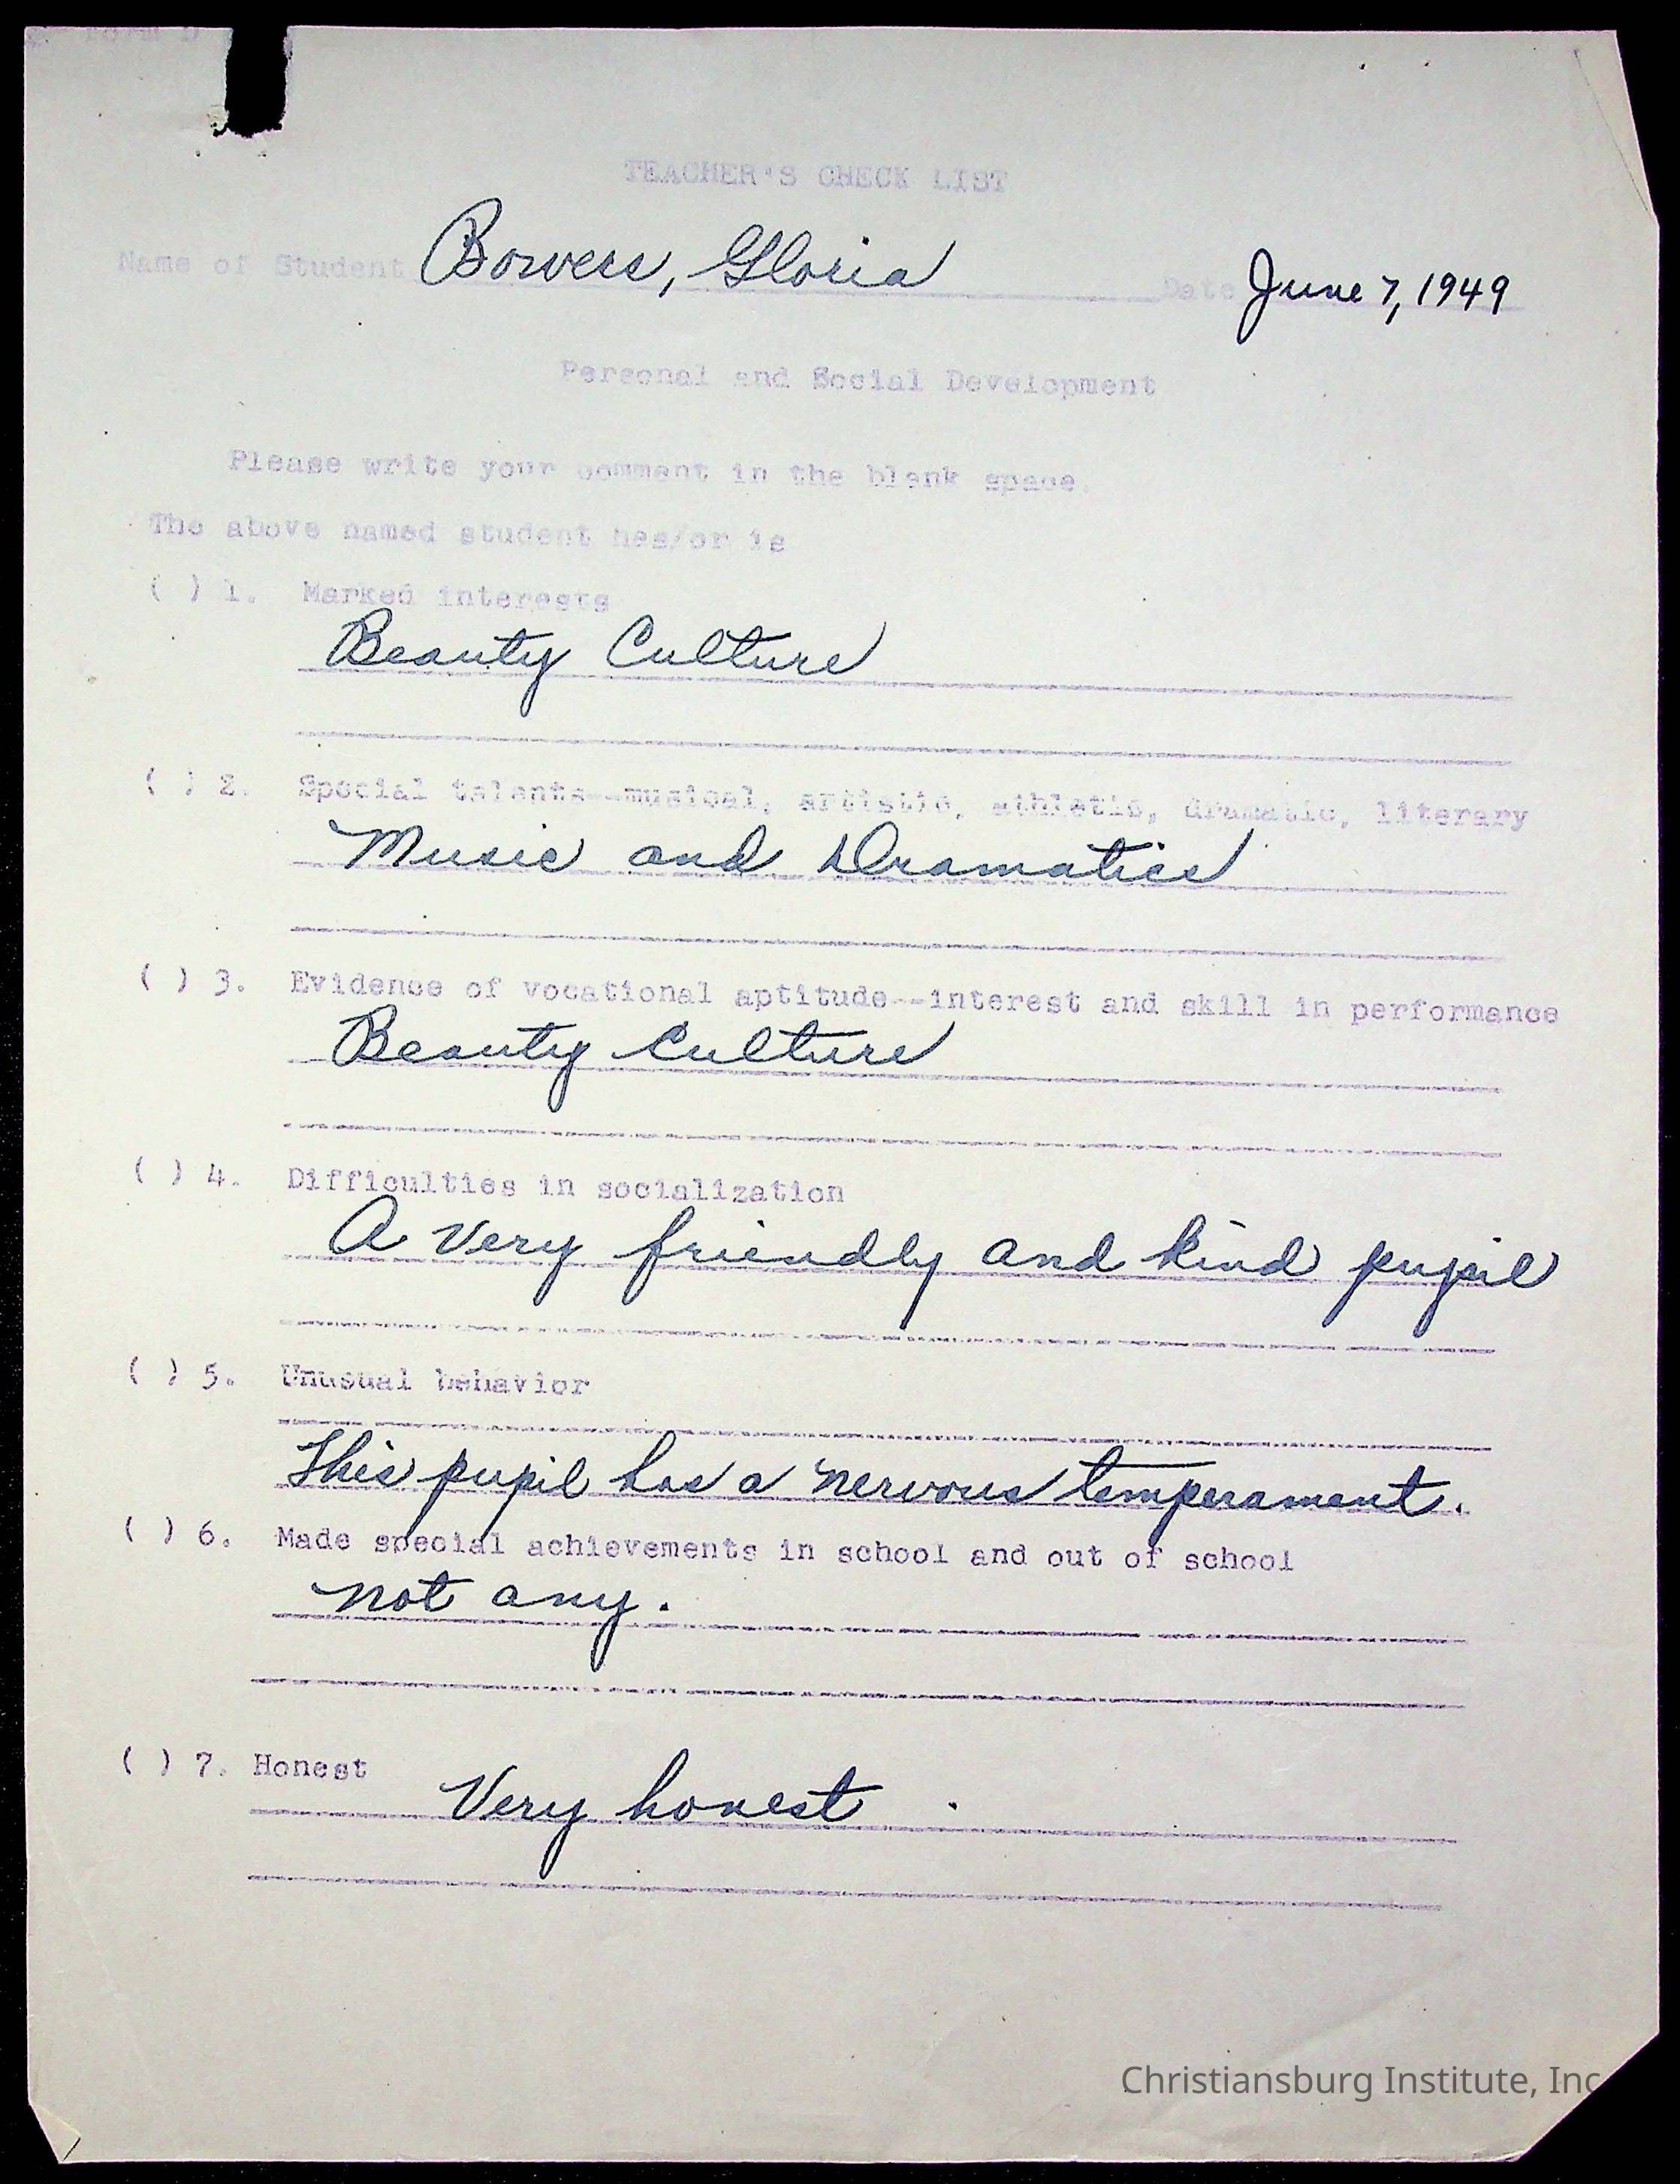 Form D
TEACHER'S CHECK LIST
Name of Student Bowers, Gloria Date June 7, 1949
Personal and Social Development
Please write your comment in the blank space.
The above named student has/or is
( ) 1. Marked interests
Beauty Culture
( ) 2. Special talents--musical, artistic, athletic, dramatic, literary
Music and Dramatics
( ) 3. Evidence of vocational aptitude--interest and skill in performance
Beauty Culture
( ) 4. Difficulties in socialization
A very friendly and kind pupil
( ) 5. Unusual behavior
This pupil has a nervous temperament.
( ) 6. Made special achievements in school and out of school
not any.
( ) 7. Honest
Very honest .
Christiansburg Institute, Inc